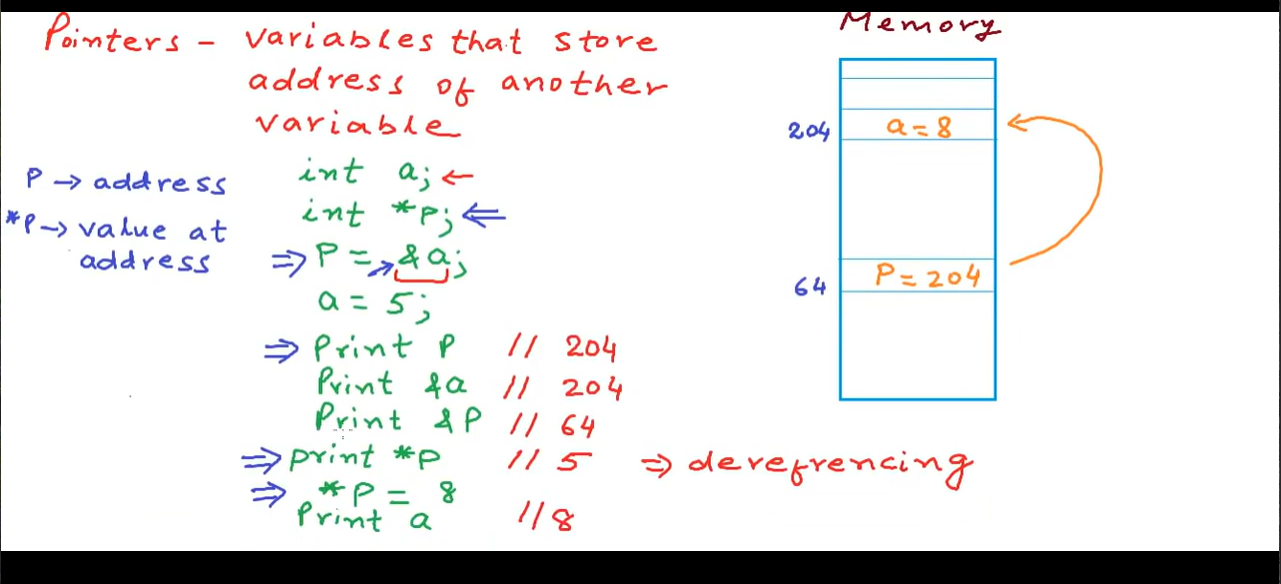 Pointers - variables that store
address of another
variable
P → address
*P → value at
address
int a; ←
int *P; ⇐
⇒ P = → &a;
a = 5;
⇒ Print P // 204
Print &a // 204
Print &P // 64
⇒ print *P // 5 ⇒ derefrencing
⇒ *P = 8
Print a // 8
Memory
204 a = 8
64 P = 204